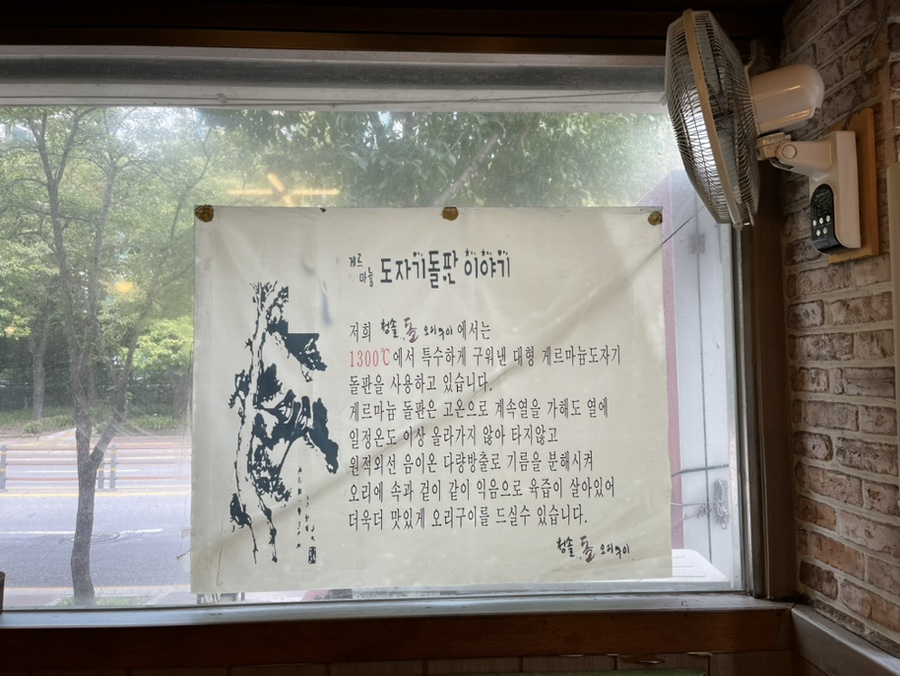 게르
마늄 도자기돌판 이야기
저희 청솔 돌 오리구이 에서는
1300℃에서 특수하게 구워낸 대형 게르마늄도자기
돌판을 사용하고 있습니다.
게르마늄 돌판은 고온으로 계속열을 가해도 열에
일정온도 이상 올라가지 않아 타지않고
원적외선 음이온 다량방출로 기름을 분해시켜
오리에 속과 겉이 같이 익음으로 육즙이 살아있어
더욱더 맛있게 오리구이를 드실수 있습니다.
청솔 돌 오리구이